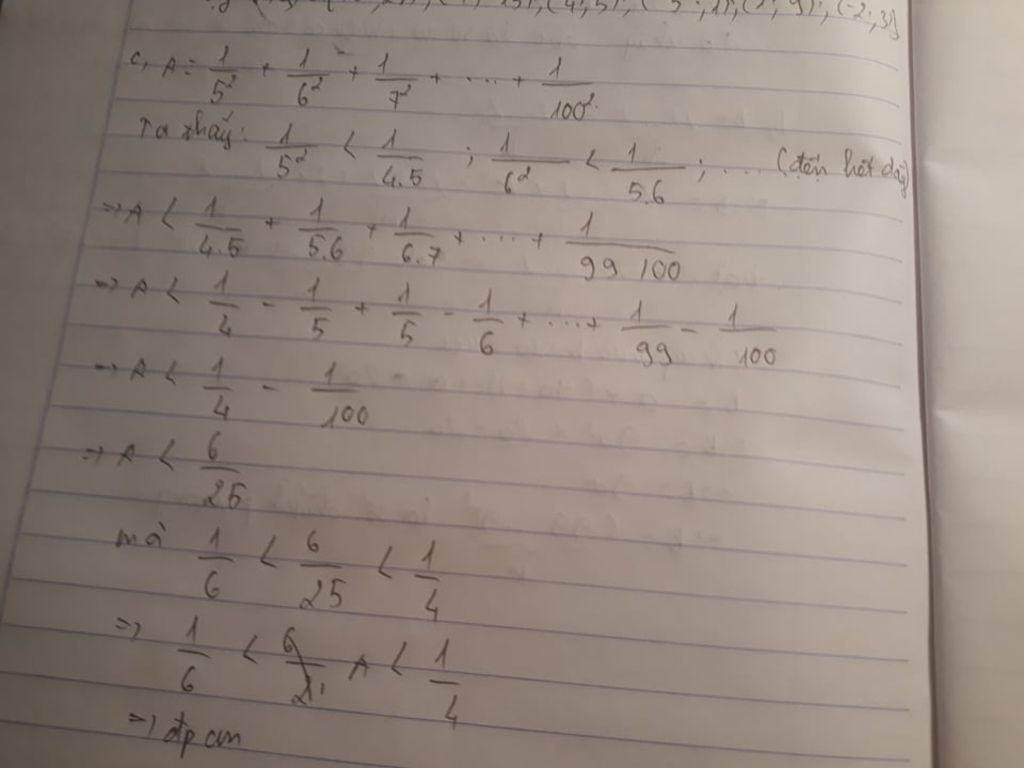 c, A = 1/5² + 1/6² + 1/7² + .... + 1/100².
Ta thấy: 1/5² < 1/4.5 ; 1/6² < 1/5.6 ; .... (đến hết dãy)
=> A < 1/4.5 + 1/5.6 + 1/6.7 + .... + 1/99.100
=> A < 1/4 - 1/5 + 1/5 - 1/6 + .... + 1/99 - 1/100
=> A < 1/4 - 1/100
=> A < 6/25
mà 1/6 < 6/25 < 1/4
=> 1/6 < A < 1/4
=> đpcm